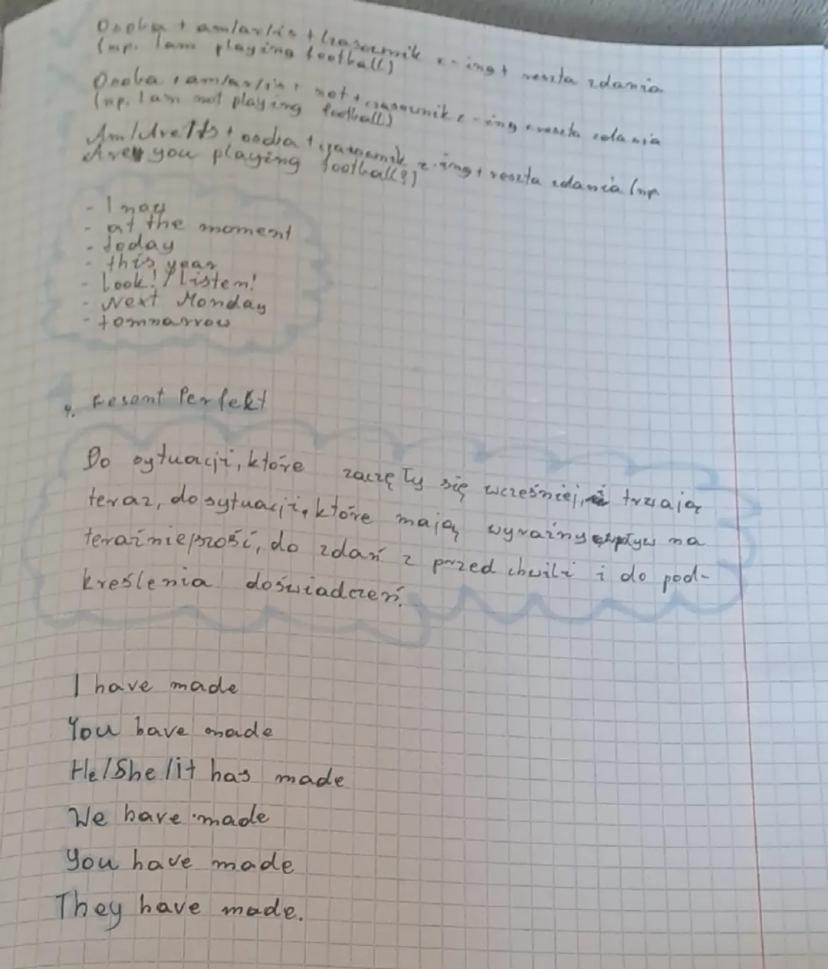 Osoba + am/are/is + czasownik z -ing + reszta zdania
(np. I am playing football)
Osoba + am/are/is + not + czasownik z -ing + reszta zdania
(np. I am not playing football)
Am/Are/Is + osoba + czasownik z -ing + reszta zdania (np
Are you playing football?)
- I now
- at the moment
- today
- this year
- look! / listen!
- Next Monday
- tommarrow
4. Presont Perfekt
Do sytuacji, które zaczęły się wcześniej, i trwają
teraz, do sytuacji, które mają wyraźny wpływ na
teraźniejszość, do zdań z przed chwili i do pod-
kreślenia doświadczeń.
I have made
You have made
He/She/it has made
We have made
You have made
They have made.